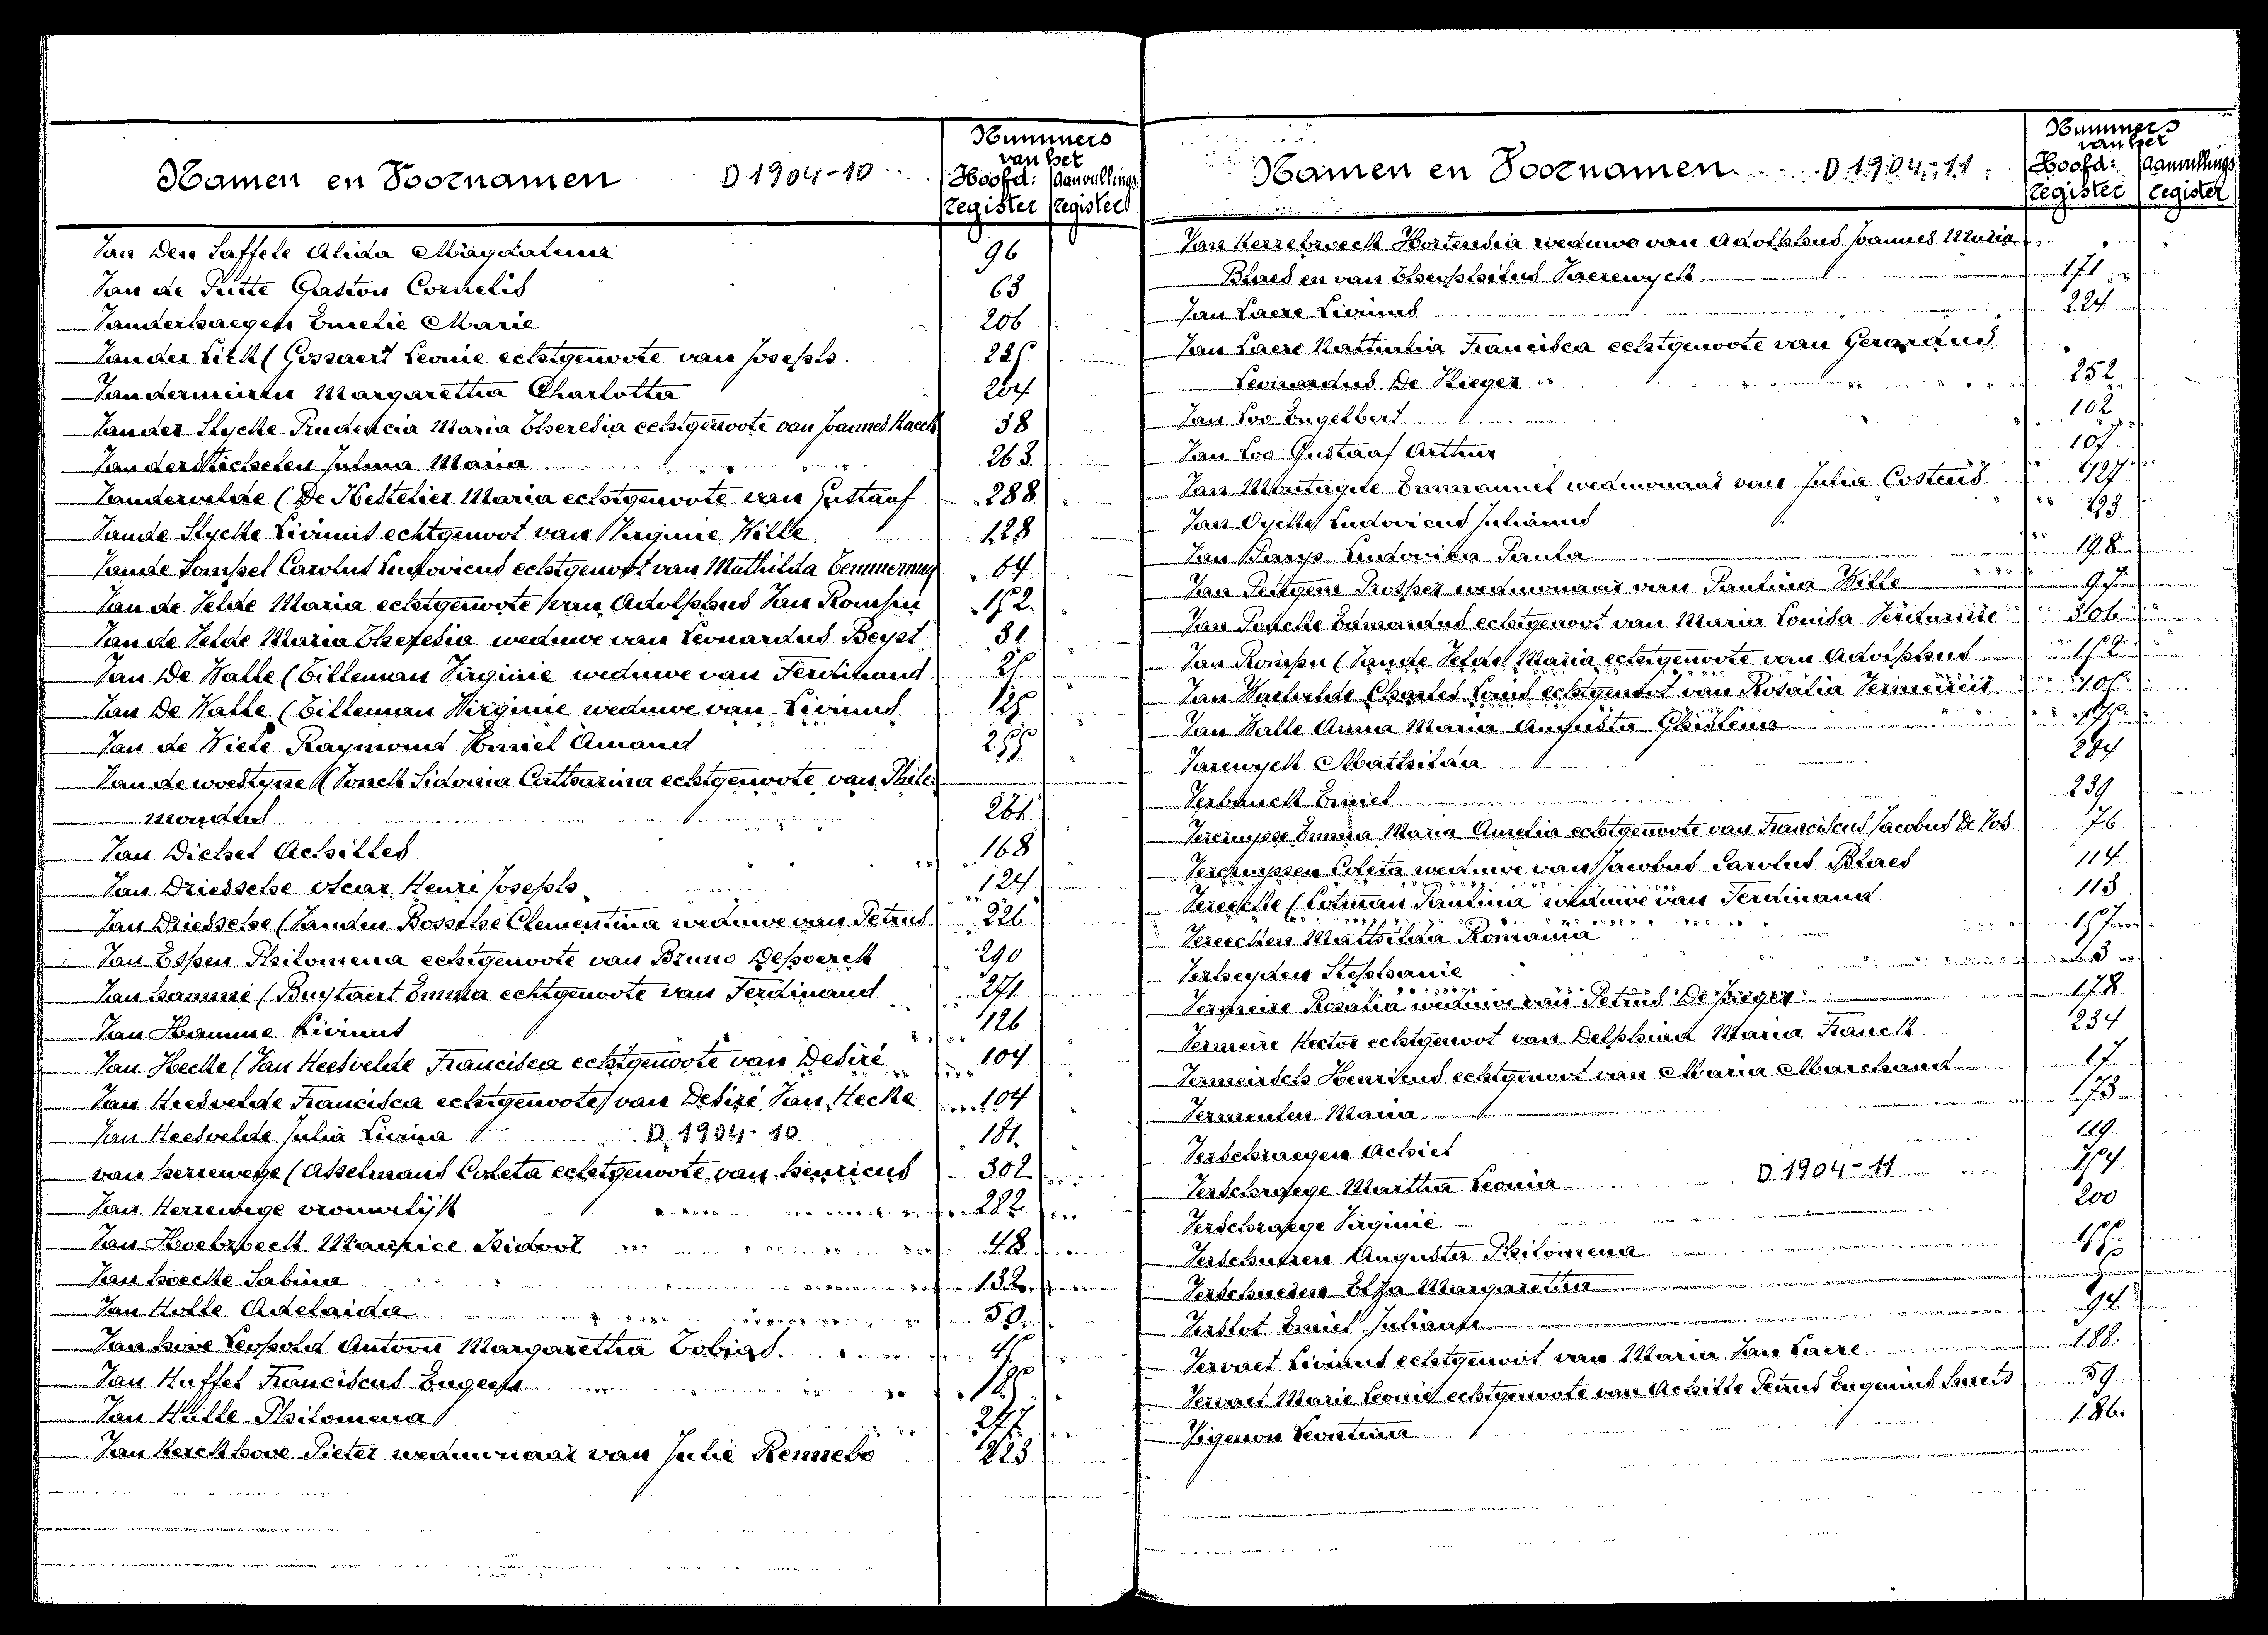 Namen en Voornamen D 1904-10
Nummers
van het
Hoofd: Aanvullings
register register
Van den Saffele Alida Magdalena 96
Van de Putte Gaston Cornelis 63
Vanderhaegen Emelie Marie 206
Van der Lick (Gossaert Leonie echtgenoote van Joseph
Vandermeiren Margaretha Charlotta 204
Vander Slycke Prudencia Maria Theresia echtgenoote van Joannes Haeck 38
Vanderstichelen Julma Maria 263
Vandervelde (De Kestelier Maria echtgenoote van Gustaaf 288
Vande Slycke Livinus echtgenoot van Virginie Wille 128
Vande Sompel Carolus Ludovicus echtgenoot van Mathilda Temmerman 64
Van de Velde Maria echtgenoote van Adolphus Van Rompu 152
Van de Velde Maria Theresia weduwe van Leonardus Beyst 31
Van De Walle (Tilleman Virginie weduwe van Ferdinand
Van De Walle (Tilleman Virginie weduwe van Livinus
Van de Wiele Raymond Emiel Amand
Van de woestyne (Vonck Sidonia Catharina echtgenoote van Philo-
261
Van Dichel Achilles 168
Van Driessche Oscar Henri Joseph 124
Van Driessche (Vanden Bossche Clementina weduwe van Petrus 226
Van Espen Philomena echtgenoote van Bruno Despoerck 290
Van hamme (Buystaert Emma echtgenoote van Ferdinand 271
Van Hamme Livinus 126
Van Hecke (Van Heesvelde Francisca echtgenoote van Desiré 104
Van Heesvelde Francisca echtgenoote van Desiré Van Hecke 104
Van Heesvelde Julia Livina D. 1904-10 181
van herrewege (Asselmans Coleta echtgenoote van henricus 302
Van Herrewege vrouwelijk 282
Van Hoebroeck Maurice Isidoor 48
Van hoecke Sabina 132
Van Holle Adelaida 50
Van hove Leopold Antoon Margaretha Tobias
Van Huffel Franciscus Eugeen
Van Hulle Philomena 277
Van Kerckhove Pieter weduwnaar van Julie Rennebo 223
Namen en Voornamen D. 1904-11
Nummers
van het
Hoofd: Aanvullings
register register
Van Kerrebroeck Hortensia weduwe van Adolphus Joannes Maria
Blaes en van Theophilus Vaerewyck 171
Van Laere Livinus 224
Van Laere Nathalia Francisca echtgenoote van Gerardus
Leonardus De Rieger 252
Van Loo Engelbert 102
Van Loo Gustaaf Arthur 107
Van Montagne Emmanuel weduwnaar van Julia Costens
Van Oycke Ludovicus Julianus
Van Parys Ludovika Paula 198
Van Peteghem Prosper weduwnaar van Paulina Wille
Van Poucke Eduardus echtgenoot van Maria Louisa 306
Van Rompu (Vande Velde Maria echtgenoote van Adolphus 152
Van Waelvelde Charles Louis echtgenoot van Rosalia Vermeiren
Van Walle Anna Maria Augusta Ghislena
Varewyck Mathilda 284
Verbauck Emiel 239
Vercruysse Emma Maria Amelia echtgenoote van Franciscus Jacobus De Vos 76
Vercruyssen Coleta weduwe van Jacobus Carolus Blaes 114
Vereecke (Cotman Paulina weduwe van Ferdinand 113
Vereecken Mathilda Romania
Verheyden Stephanie
Vermeire Rosalia weduwe van Petrus De Rieger 178
Vermeire Hector echtgenoot van Delphina Maria Franck 234
Vermeirsch Henrikus echtgenoot van Maria Marchand 17
Vermeulen Maria 173
Verschraegen Achiel 119
Verschraege Martha Leonia D. 1904-11
Verschraege Virginie 200
Verschuren Augusta Philomena
Verschueren Elza Margaretha
Verslot Emiel Juliaan 94
Vervaet Livinus echtgenoot van Maria Van Laere 188
Vervaet Marie Leonie echtgenoote van Achille Petrus Eugenius Smets 59
Vigeson Leontina 186